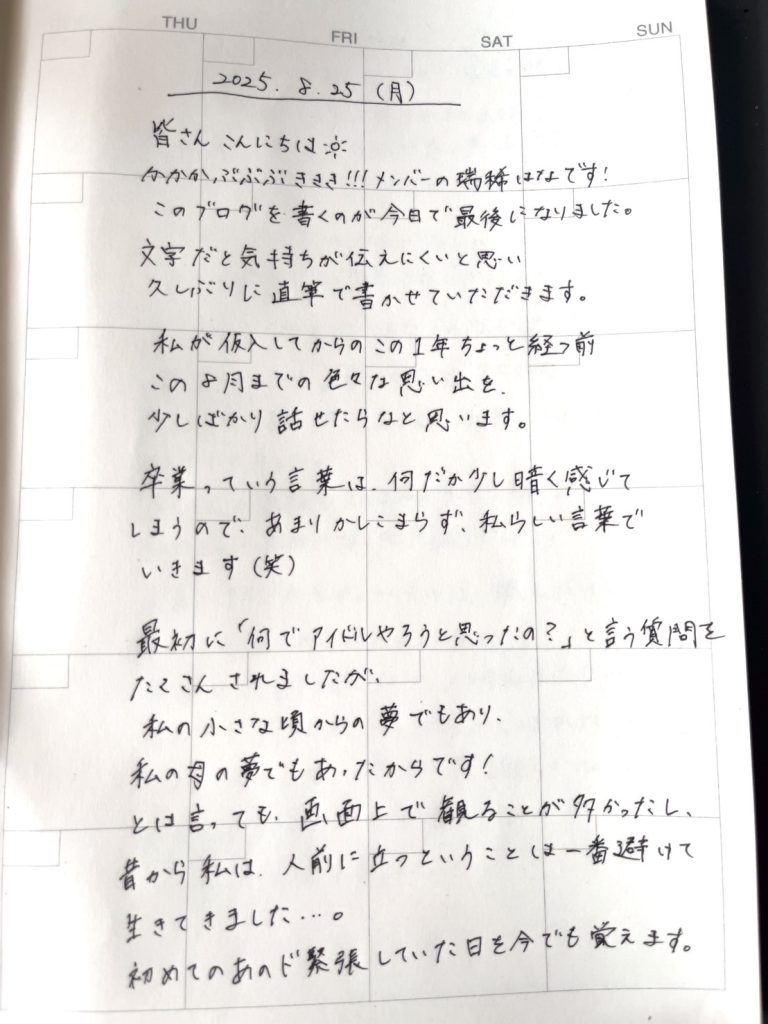 THU FRI SAT SUN
2025. 8. 25 (月)
皆さん こんにちは☼
かかか、ぶぶぶ ききき!!! メンバーの 瑞稀はなです!
このブログを 書くのが 今日で 最後になりました。
文字だと 気持ちが 伝えにくいと思い
久しぶりに 直筆で 書かせていただきます。
私が 仮入してからの この 1年 ちょっと経つ前
この 8月までの 色々な 思い出を、
少しばかり 話せたらなと 思います。
卒業っていう言葉は、何だか少し暗く感じて
しまうので、あまり かしこまらず、私らしい言葉で
いきます (笑)
最初に「何でアイドルやろうと思ったの?」と言う質問を
たくさん されましたが、
私の 小さな頃からの 夢でもあり、
私の母の夢でもあったからです!
とは言っても、画面上で 観ることが多かったし、
昔から 私は、人前に 立つということは 一番避けて
生きてきました...。
初めてのあのド緊張していた日を今でも覚えます。